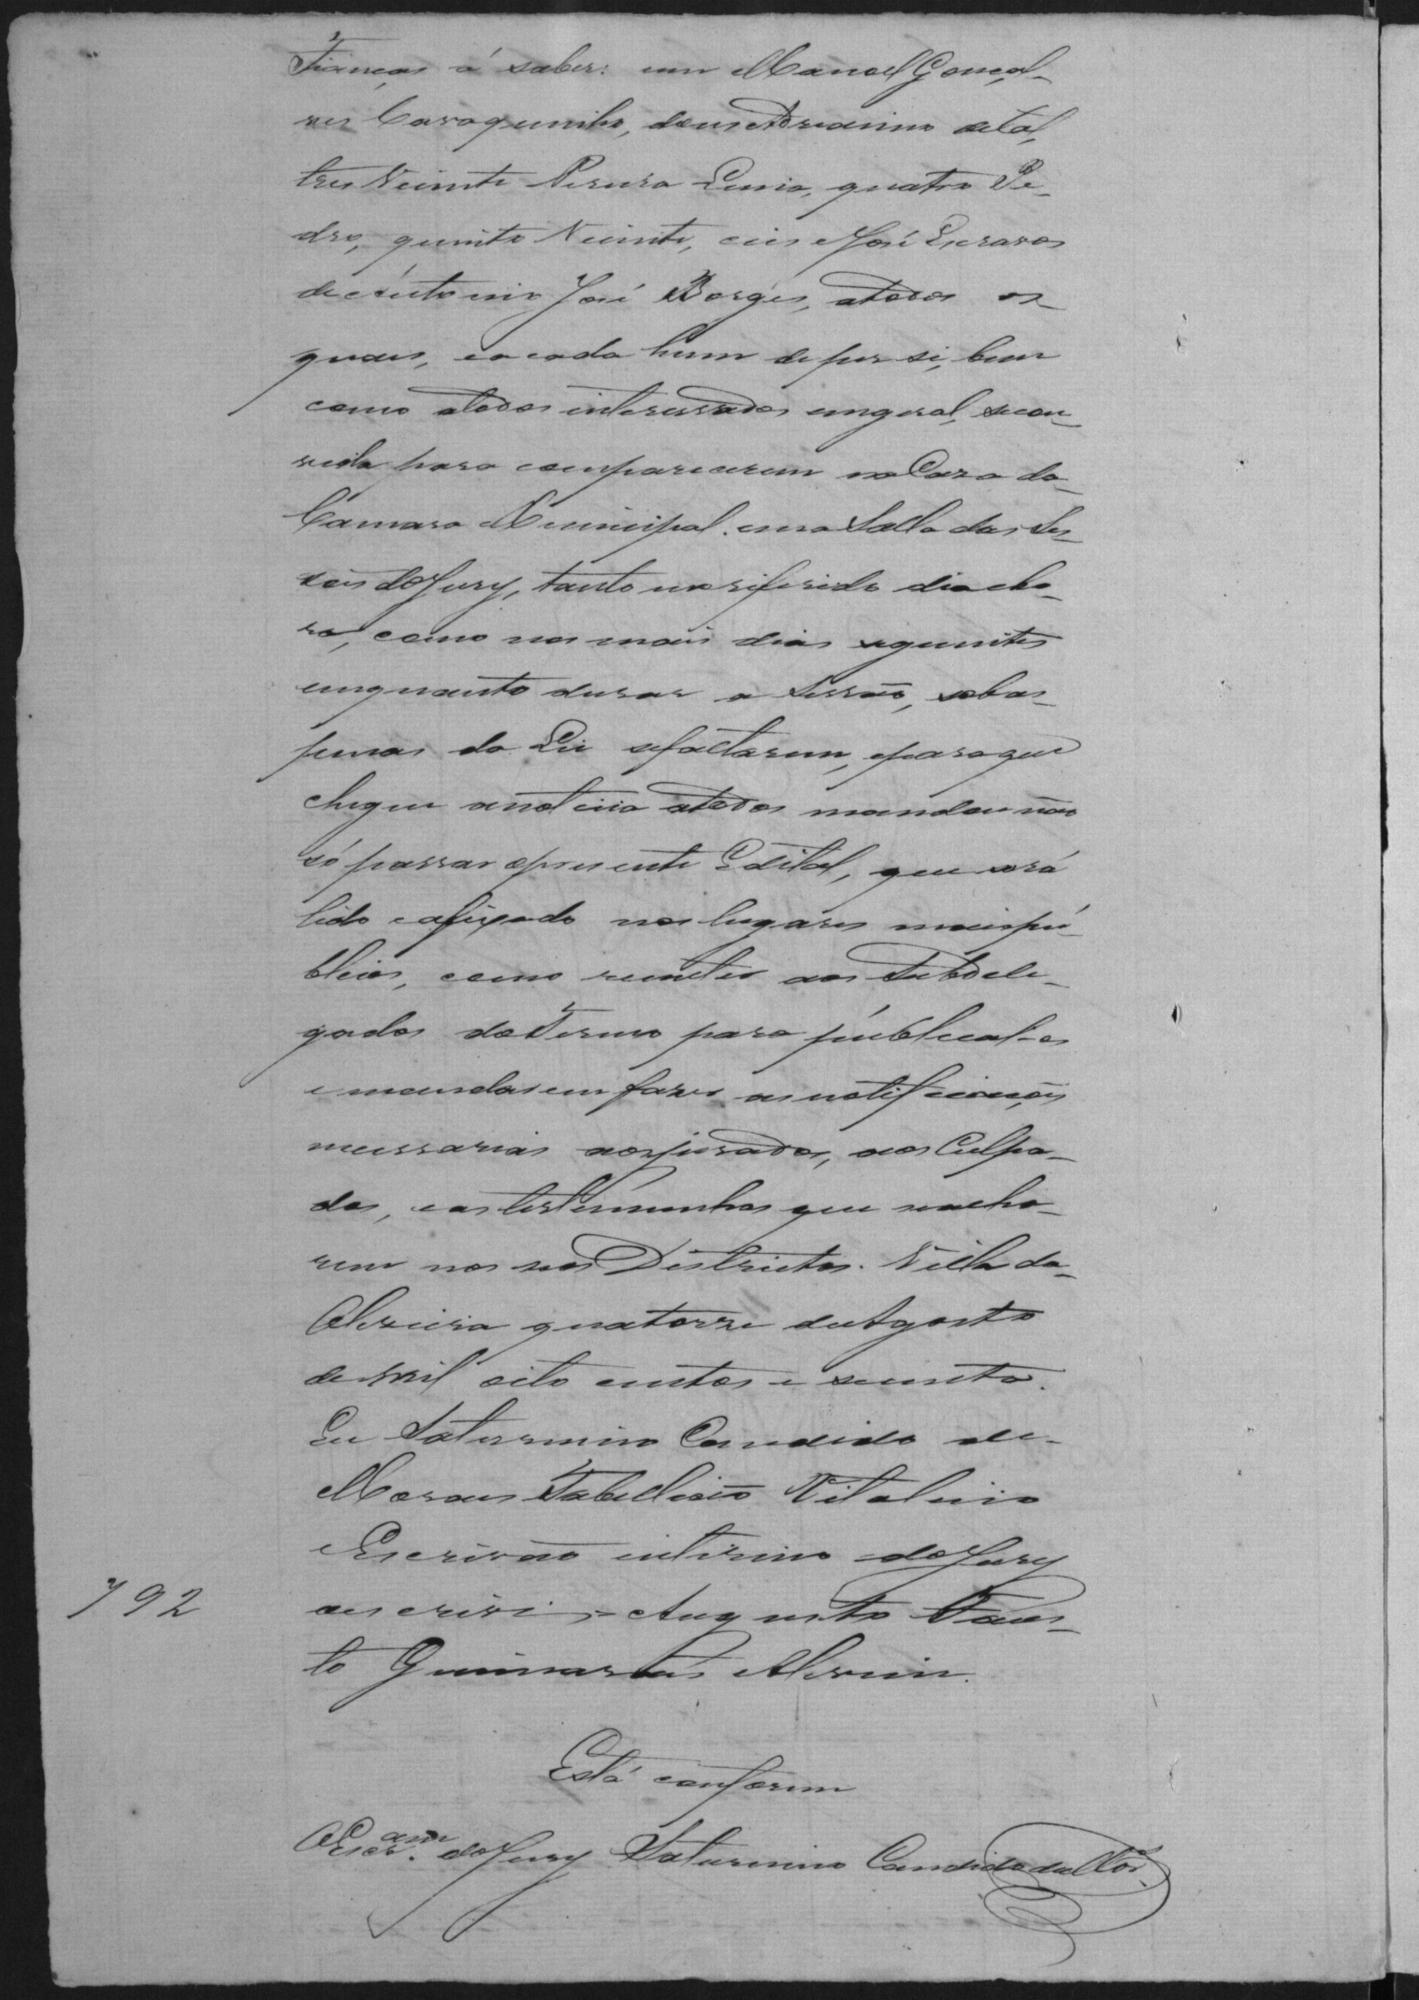 Fianças á saber: um Manoel Gonçal-
ves Carogunilho, dous Adreanino de tal,
tres Vicente Pereira Lucio, quatro Pe-
dro, quinto Vicente, ceis José Escravos
de Antonio José Borges, atodos os
quaes, e a cada hum de per si, bem
como atodos interessados em geral, se con-
vida para comparecerem na Caza da
Camara Municipal. em a Salla das Se-
ções do Jury, tanto no referido dia e ho-
ra, como nos mais dias seguintes
em quanto durar a Sessão, sobas
penas da Lei se faltarem, e para que
chegue a noticia atodos mandou não
só passar o presente Edital, que será
lido e afixado nos lugares mais pú-
blicos, como remeter aos Subdele-
gados do Termo para públical-os
e mandarem fazer as notificações
necessarias aos jurados, aos Culpa-
dos, e as testemunhas que se acha-
rem nos seus Districtos. Villa da
Oliveira quatorze de Agosto
de mil oito centos e secenta.
Eu Saturnino Candido de
Moraes Tabellião Vitalicio
e Escrivão interino do Jury
o escrivi = Augusto Faus-
to Guimarães Alvim.
792
Está conforme
O Escr.am do Jury Saturnino Candido de Mor.s